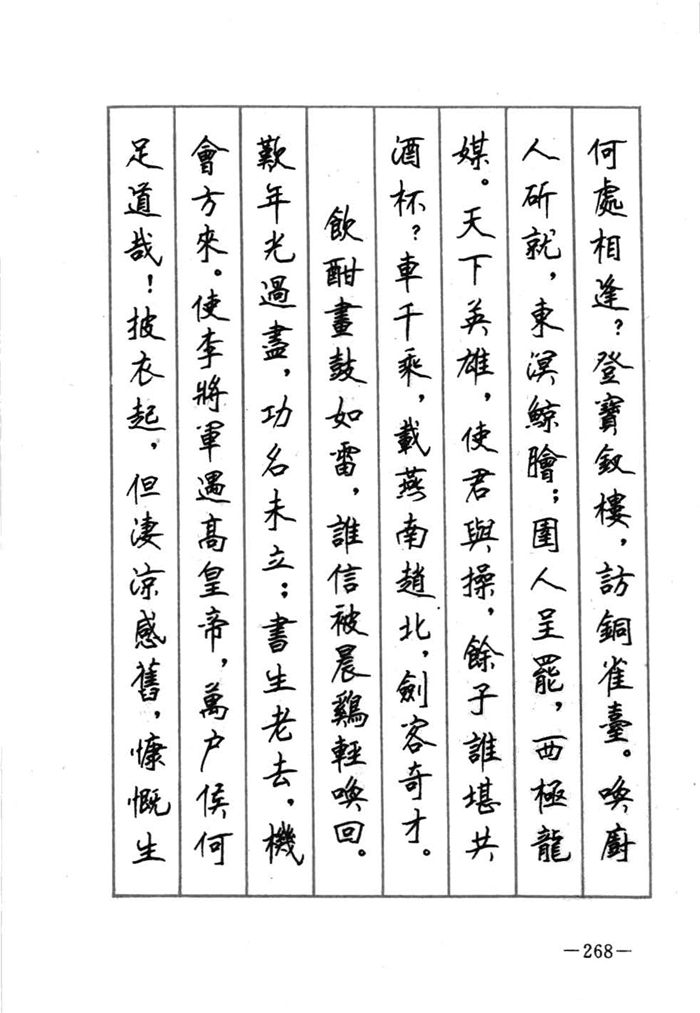 何處相逢？登寶釵樓，訪銅雀臺。喚廚
人斫就，東溟鯨膾；圉人呈罷，西極龍
媒。天下英雄，使君與操，餘子誰堪共
酒杯？車千乘，載燕南趙北，劍客奇才。
飲酣畫鼓如雷，誰信被晨鷄輕喚回。
歎年光過盡，功名未立；書生老去，機
會方來。使李將軍遇高皇帝，萬户侯何
足道哉！披衣起，但淒涼感舊，慷慨生
—268—